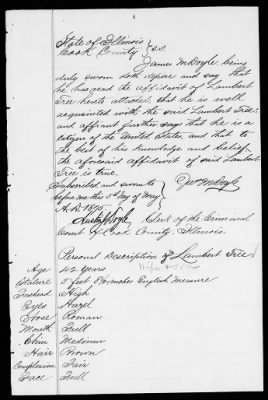 State of Illinois
Cook County } s.s.
James M Doyle being
duly sworn doth depose and say that
he has read the affidavit of Lambert
Tree hereto attached, that he is well
acquainted with the said Lambert Tree;
and affiant further says that he is a
citizen of the United States, and that to
the best of his knowledge and belief
the aforesaid affidavit of said Lambert
Tree is true.
Subscribed and sworn to
before me this 5th day of May
A.D. 1875
Doyle, Clerk of the Criminal
Court of Cook County, Illinois.
Personal Description of Lambert Tree
Age 42 years
Stature 5 feet inches English measure
Forehead High
Eyes Hazel
Nose Roman
Mouth Full
Chin Medium
Hair Brown
Complexion Fair
Face Full